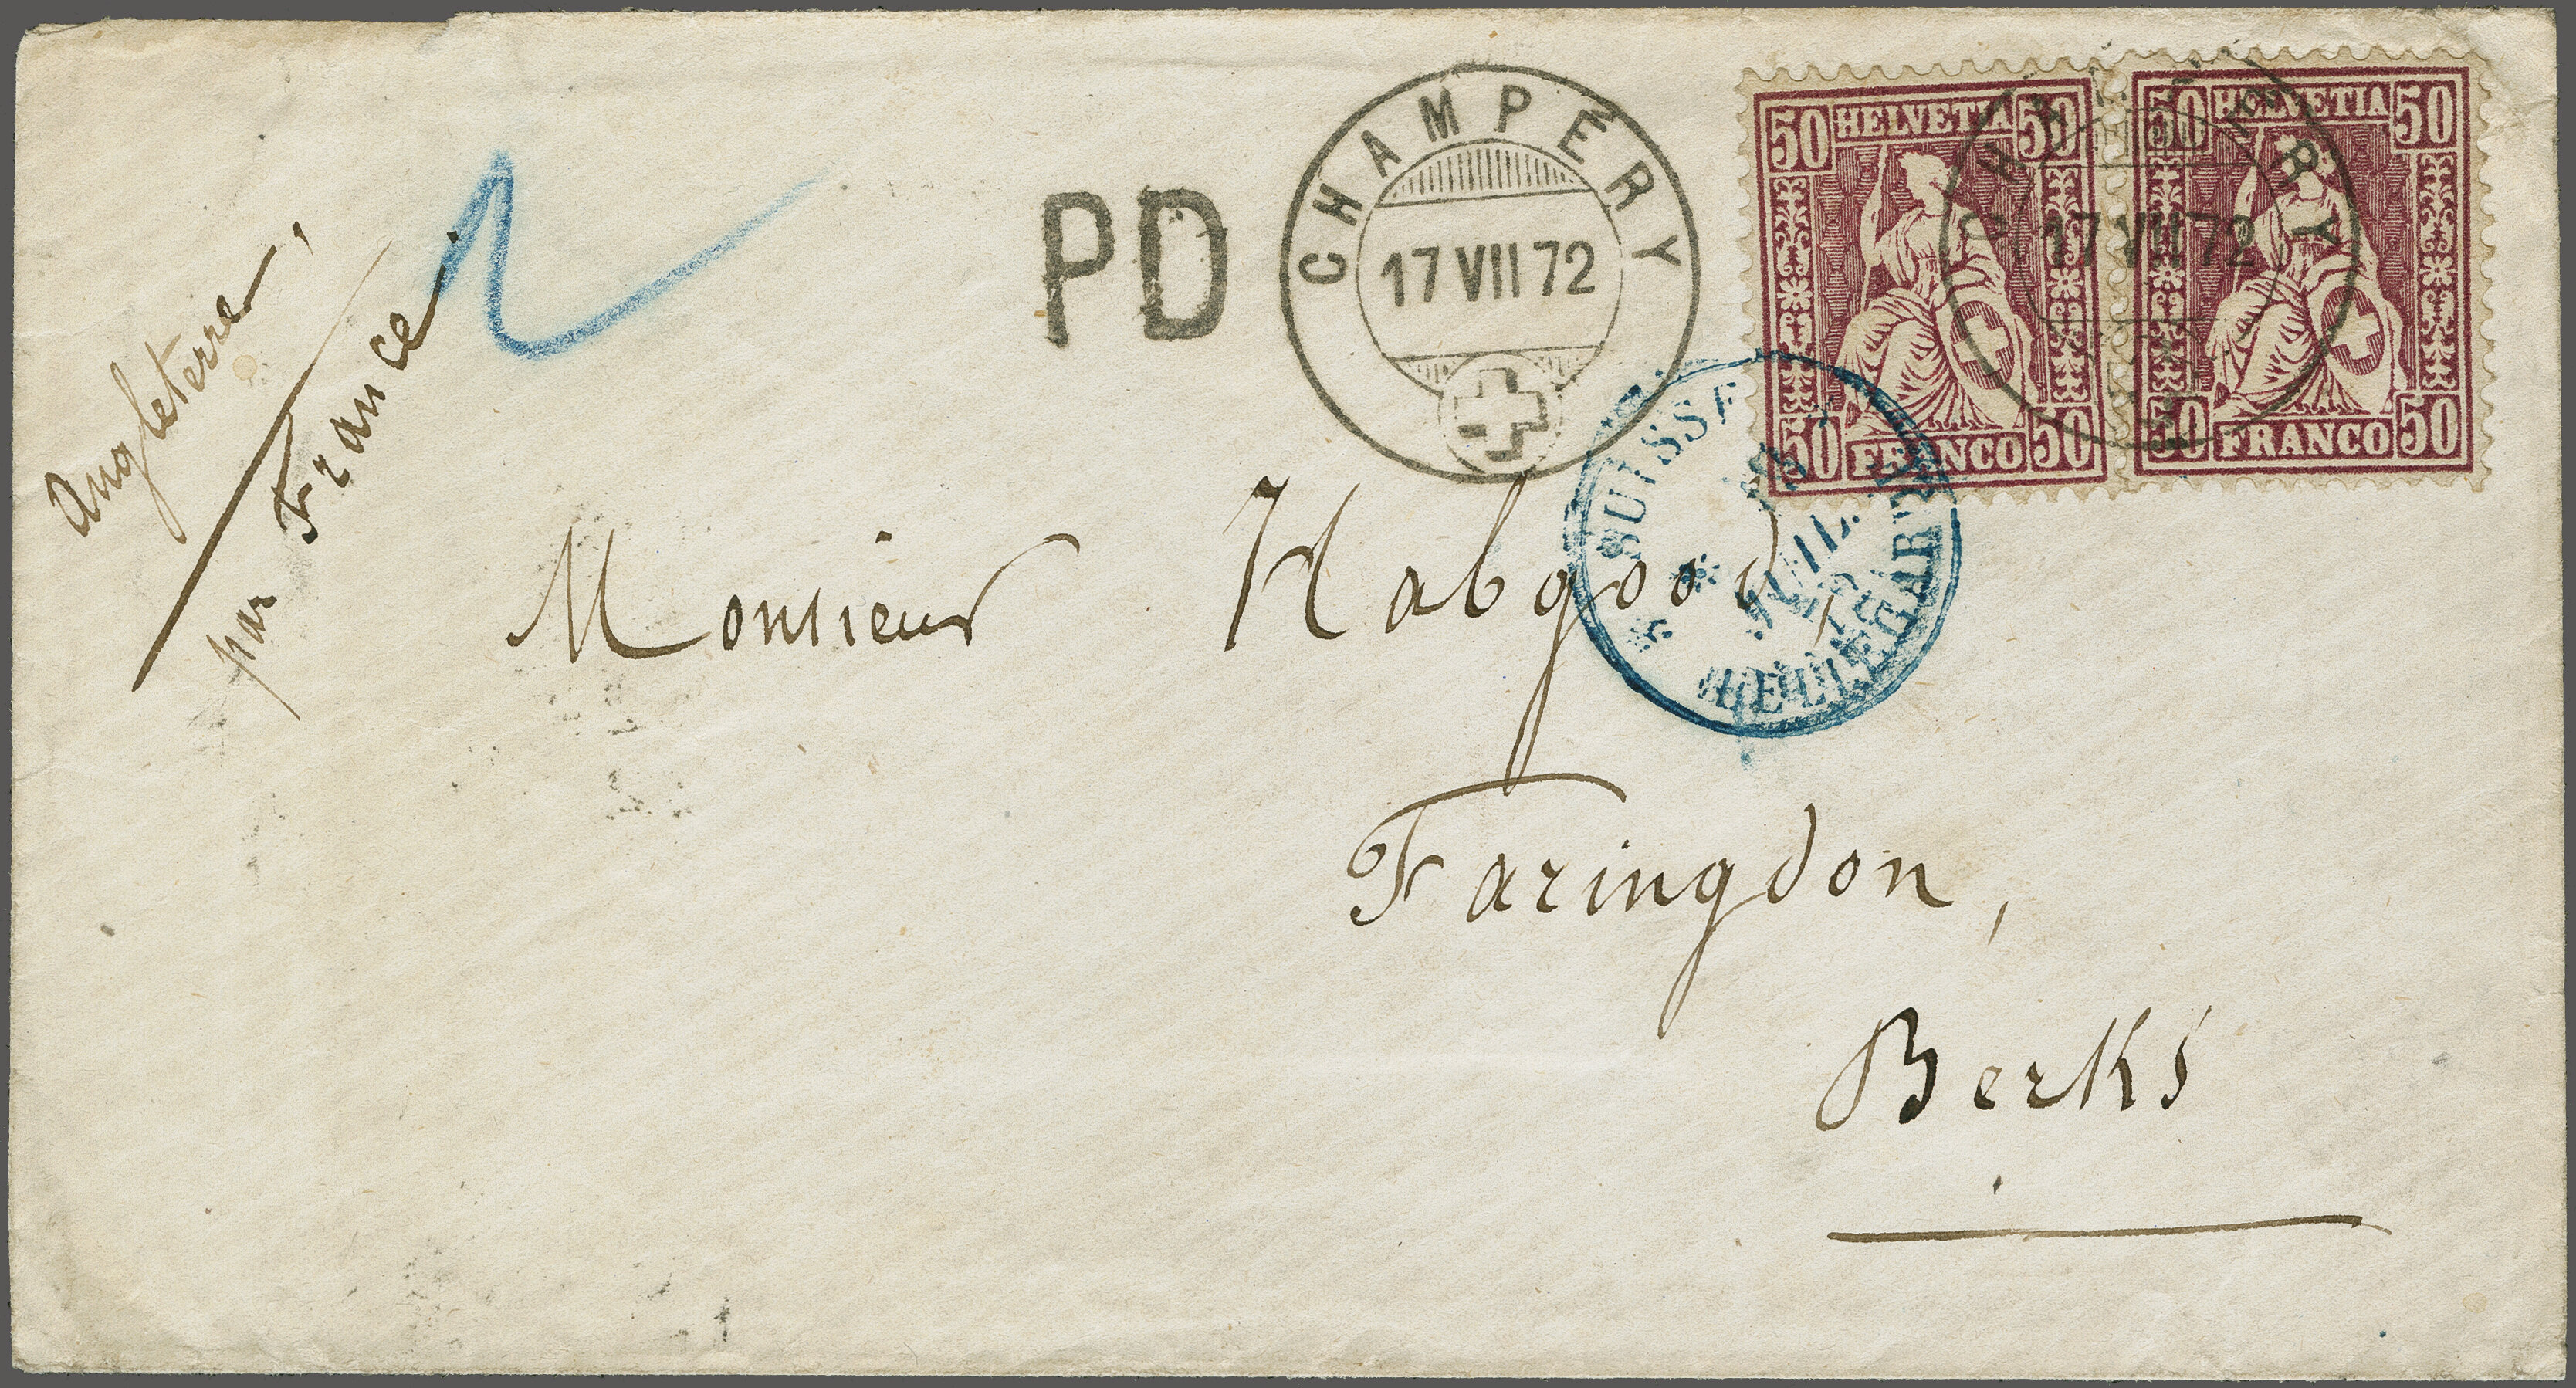 Angleterre,
par France.
PD
CHAMPERY
17 VII 72
50 HELVETIA 50
50 FRANCO 50
50 HELVETIA 50
50 FRANCO 50
CHAMPERY
17 VII 72
SUISSE
JUIL.
BELLEGARDE
Monsieur Habgood,
Faringdon,
Berks